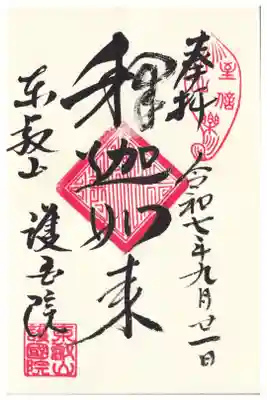 奉拝
令和七年九月廿一日
釋迦如来
東叡山
護国院
東叡山
護國院